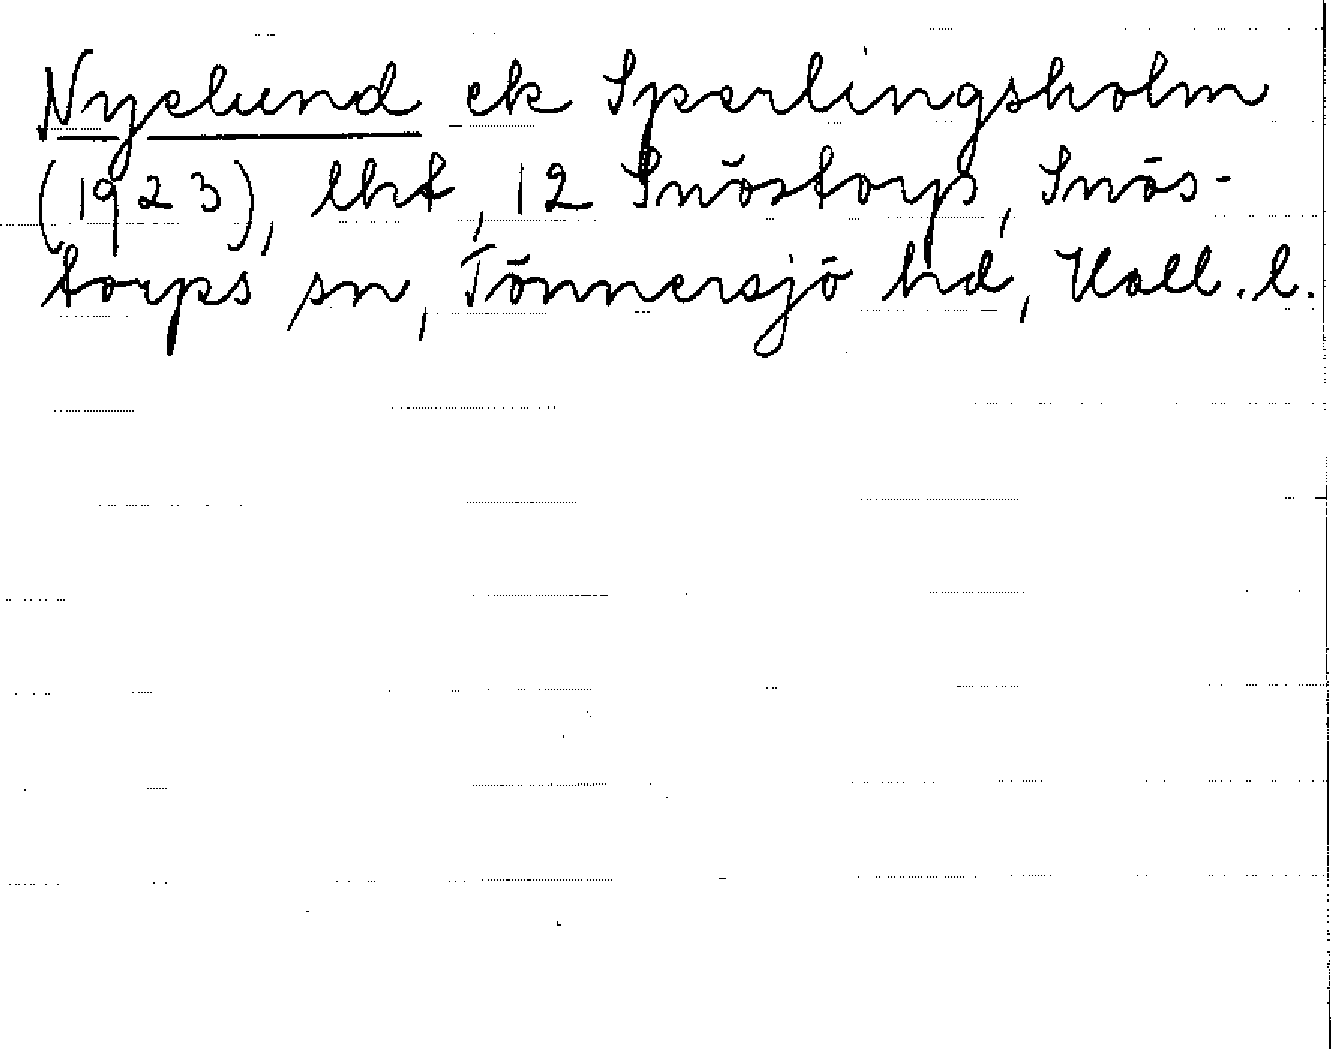 Nyelund ek Sperlingsholm
(1923), lht, 12 Snöstorp, Snös-
torps sn, Tönnersjö hd, Hall. l.